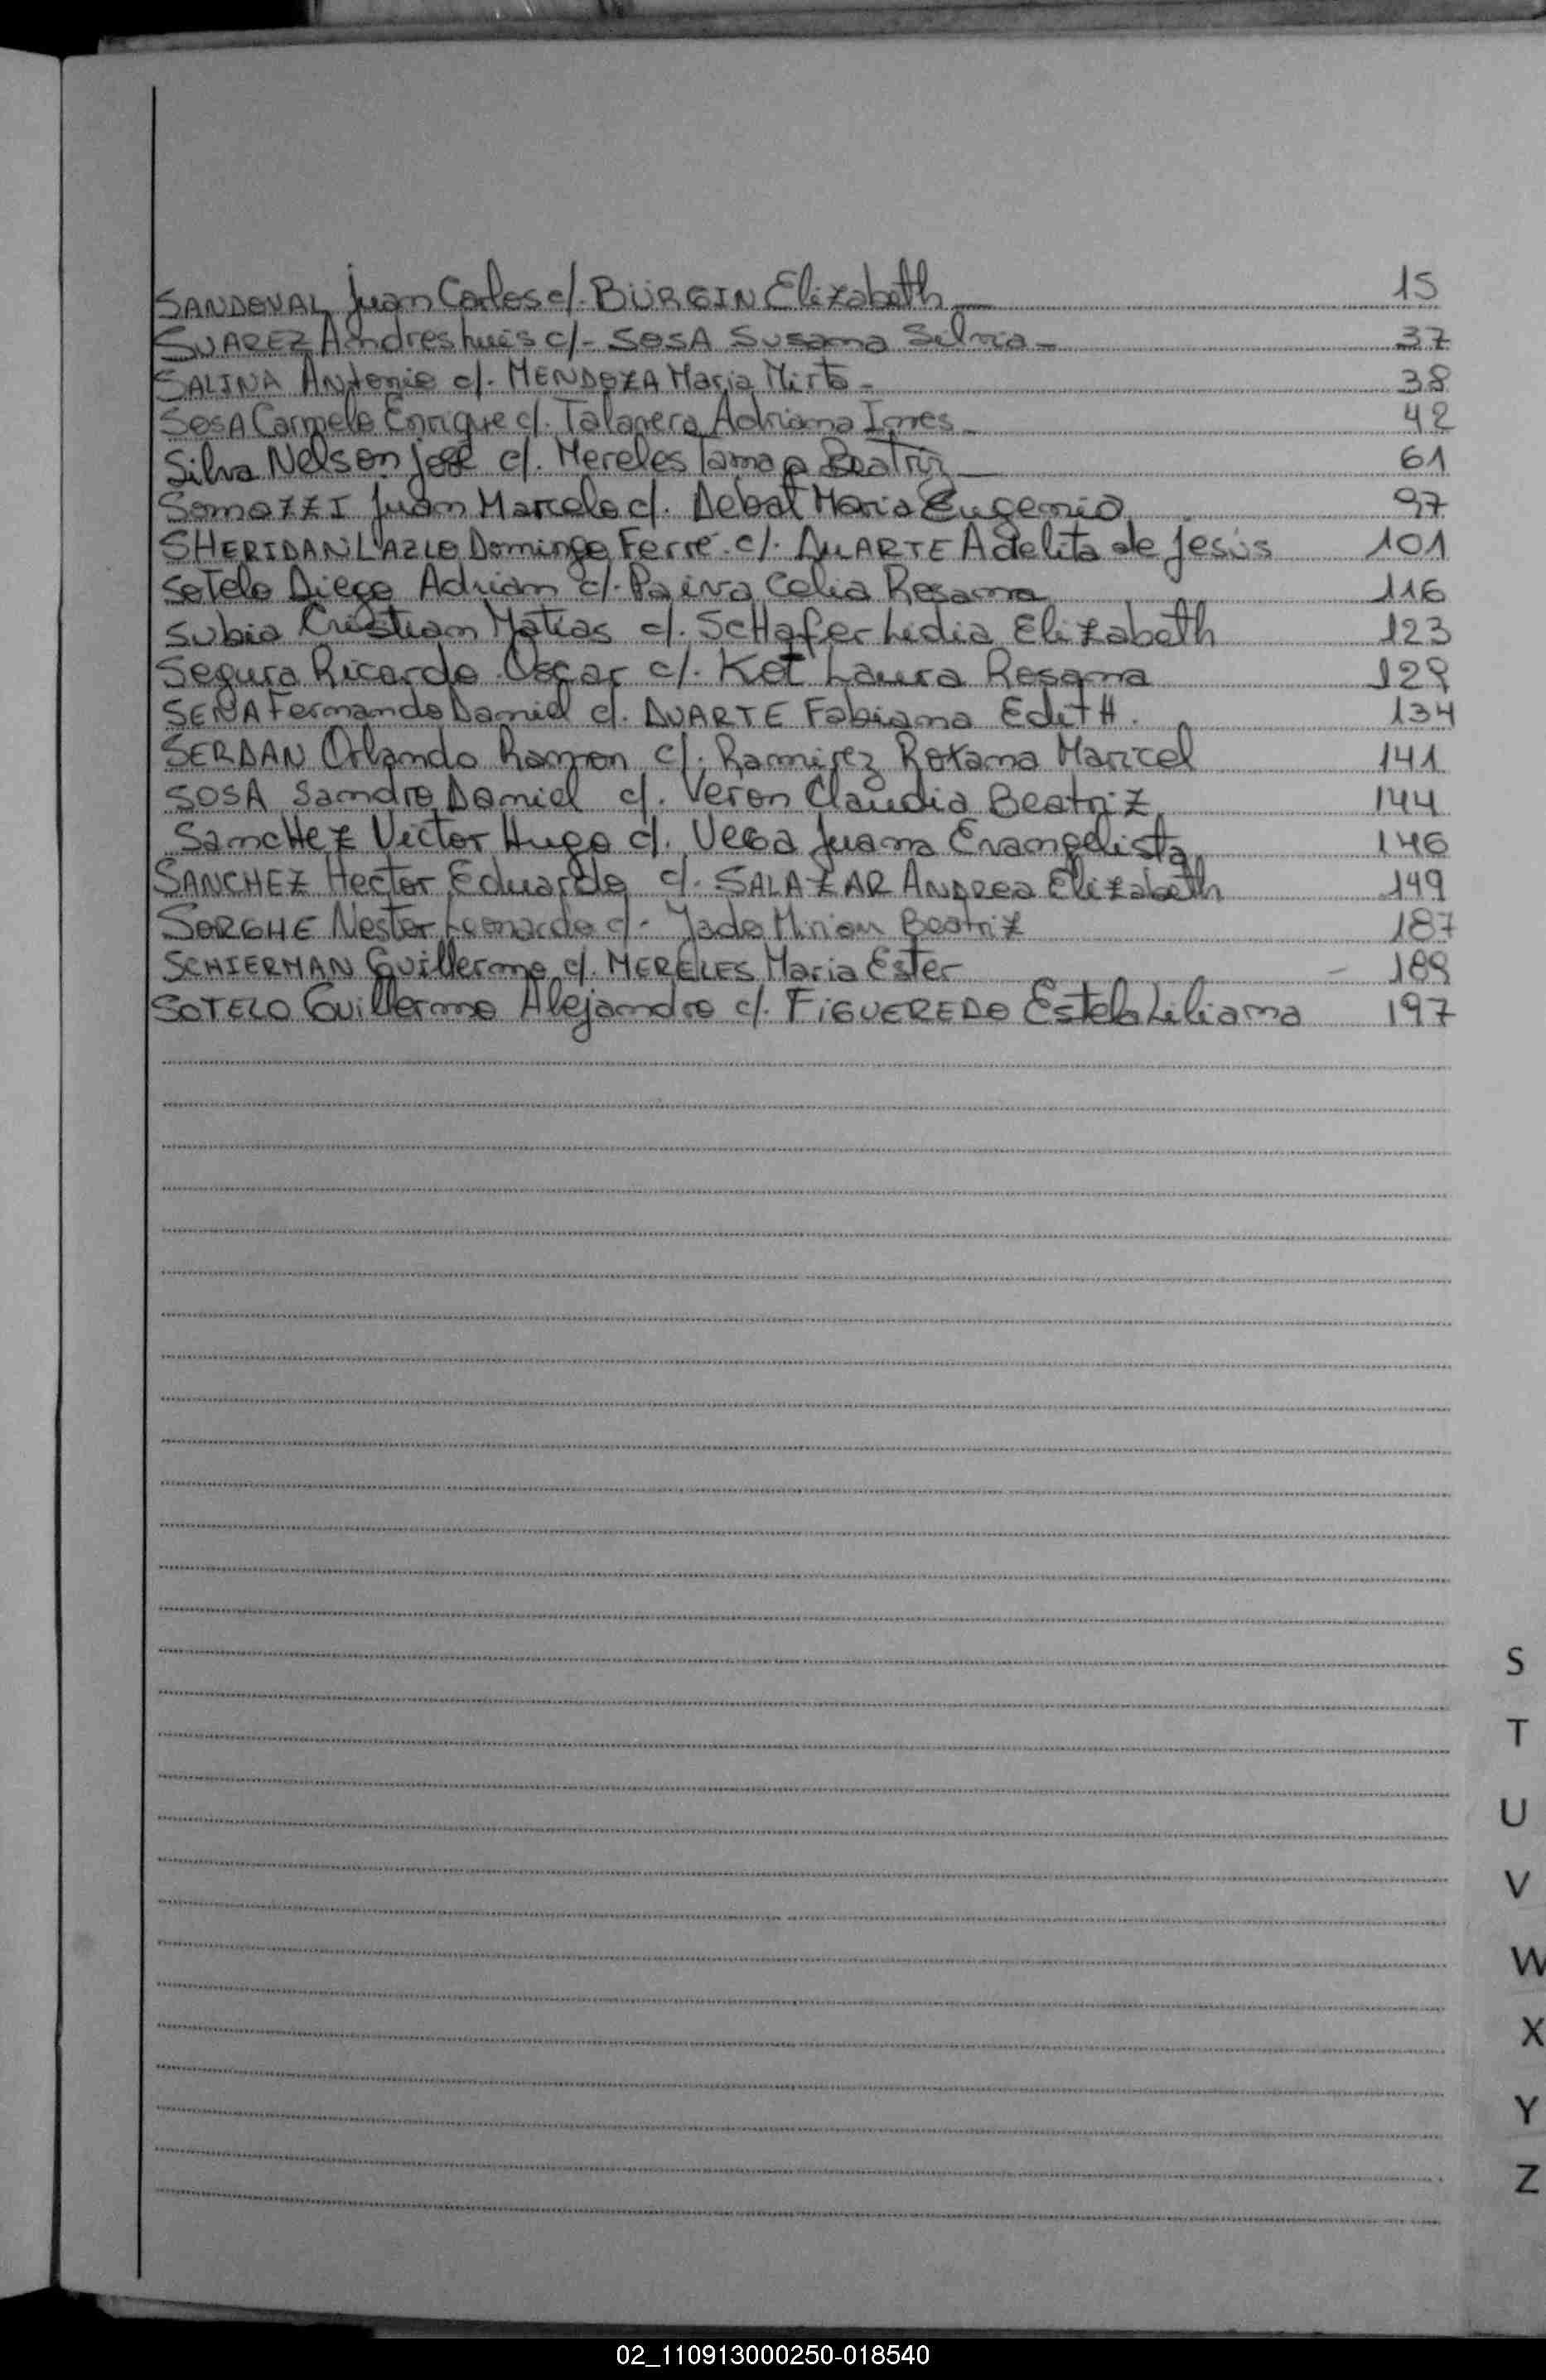 SANDOVAL Juan Carlos c/. BÜRGIN Elizabeth 15
SUAREZ Andres Luis c/- SOSA Susana Silvia - 37
SALINA Antonio c/. MENDOZA Maria Mirta - 38
SosA Carmelo Enrique c/. Talavera Adriana Ines - 42
Silva Nelson José c/. Mereles Beatriz 61
SomozzI Juan Marcelo c/. Debat Maria Eugenia 97
SHERIDAN LAZLO Domingo Ferré c/. DUARTE Adelita de Jesús 101
Sotelo Diego Adrian c/. Paiva Celia Rosana 116
Subia Cristian Matias c/. ScHafer Lidia Elizabeth 123
Segura Ricardo Oscar c/. Ket Laura Rosana 129
SENA Fernando Daniel c/. DUARTE Fabiana EditH. 134
SERDAN Orlando Ramon c/. Ramirez Roxana Maricel 141
SOSA Sandro Daniel c/. Veron Claudia Beatriz 144
SancHez Victor Hugo c/. Vega Juana Evangelista 146
SANCHEZ Hector Eduardo c/. SALAZAR Andrea Elizabeth 149
SORGHE Nestor Leonardo c/- Miriam Beatriz 187
SCHIERMAN Guillermo c/. MERELES Maria Ester - 189
SOTELO Guillermo Alejandro c/. FiGUEREDO Estela Liliana 197
S
T
U
V
W
X
Y
Z
02_110913000250-018540